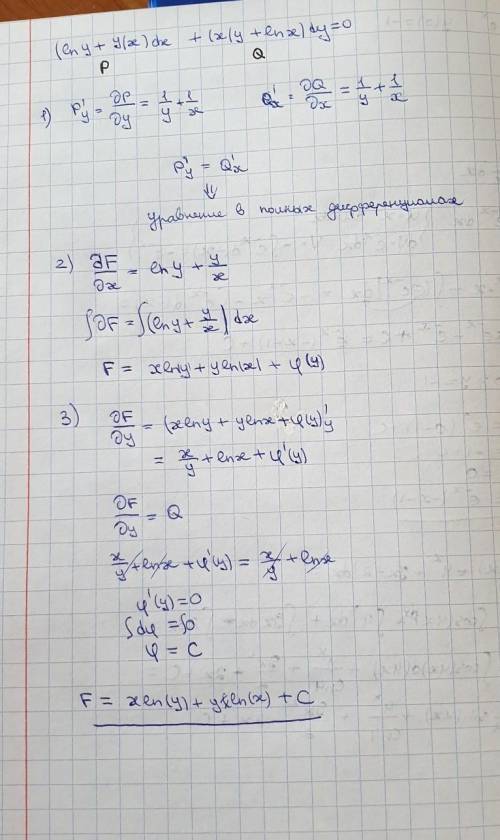 (ln y + y/x) dx + (x/y + ln x) dy = 0
P Q
1) P'y = ∂P/∂y = 1/y + 1/x Q'x = ∂Q/∂x = 1/y + 1/x
P'y = Q'x
⇓
уравнение в полных дифференциалах
2) ∂F/∂x = ln y + y/x
∫∂F = ∫(ln y + y/x) dx
F = x ln y + y ln(x) + φ(y)
3) ∂F/∂y = (x ln y + y ln x + φ(y))'y
= x/y + ln x + φ'(y)
∂F/∂y = Q
x/y + ln x + φ'(y) = x/y + ln x
φ'(y) = 0
∫dφ = ∫0
φ = C
F = x ln(y) + y ln(x) + C